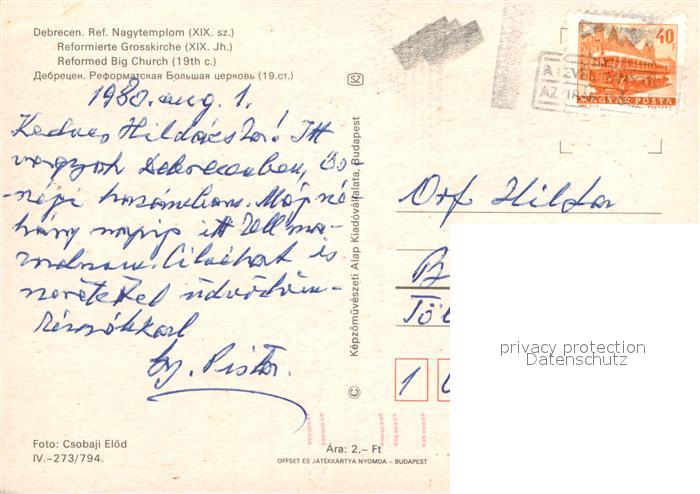 Debrecen. Ref. Nagytemplom (XIX. sz.)
Reformierte Grosskirche (XIX. Jh.)
Reformed Big Church (19th c.)
Дебрецен. Реформатская Большая церковь (19.ст.)
1980. aug. 1.
Kedves Itt
vagyok Debrecenben,
hazámban. Még né-
hány napig itt kell ma-
radnom. is
szeretettel üdvözlöm
kézcsókkal
Pista.
Foto: Csobaji Előd
IV.-273/794.
SZ
Képzőművészeti Alap Kiadóvállalata, Budapest
©
Ára: 2,- Ft
OFFSET ÉS JÁTÉKKÁRTYA NYOMDA - BUDAPEST
40
MAGYAR POSTA
Orf Hilda
B
1
privacy protection
Datenschutz